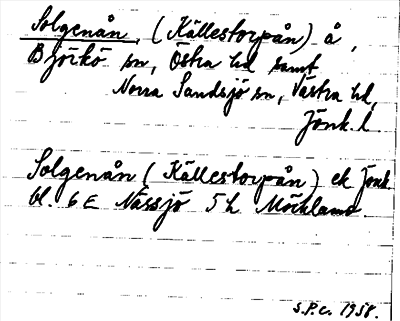 Solgenån, (Källestorpån) å,
Björkö sn, Östra hd samt
Norra Sandsjö sn, Västra hd,
Jönk. l.
Solgenån (Källestorpån) ek Jönk
bl. 6 E Nässjö 5 h Möcklamo.
S.P.C. 1958.